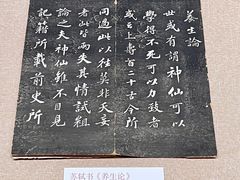 養生論
世或有謂神仙可以
學得不死可以力致者
或云上壽百二十古今所
同過此以往莫非夭妄
者此皆兩失其情試粗
論之夫神仙雖不目見
記籍所載前史所
苏轼书《养生论》